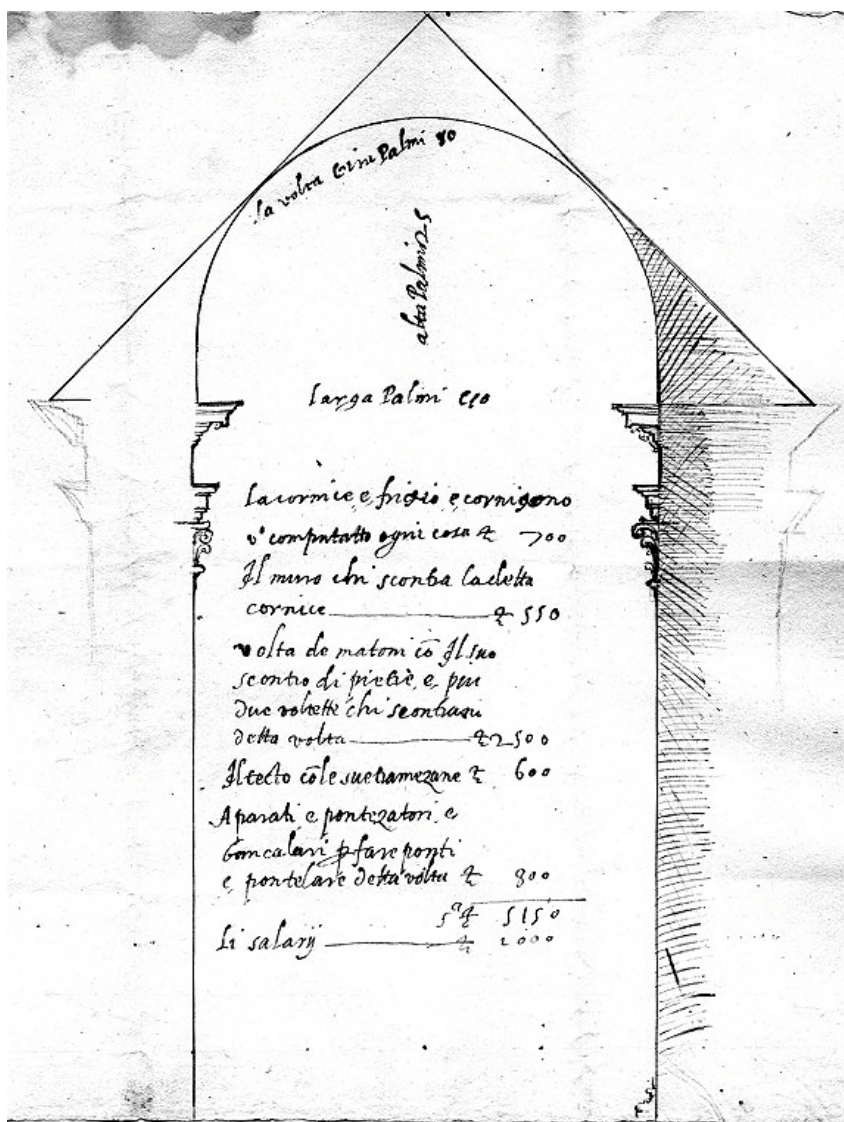 la volta Gira Palmi 80
alta Palmi 25
larga Palmi
la cornice e frigio e
computatto ogni cosa ₤ 700
Il muro chi scontra la detta
cornice ₤ 550
volta de matoni cō Il suo
scontro di pietre, e piu
due voltette chi
detta volta ₤ 2500
Il tecto cō le sue tramezane ₤ 600
Aparati e pontezatori e
fare ponti
e pontelare detta volta ₤ 800
₤ 5150
li salarij ₤